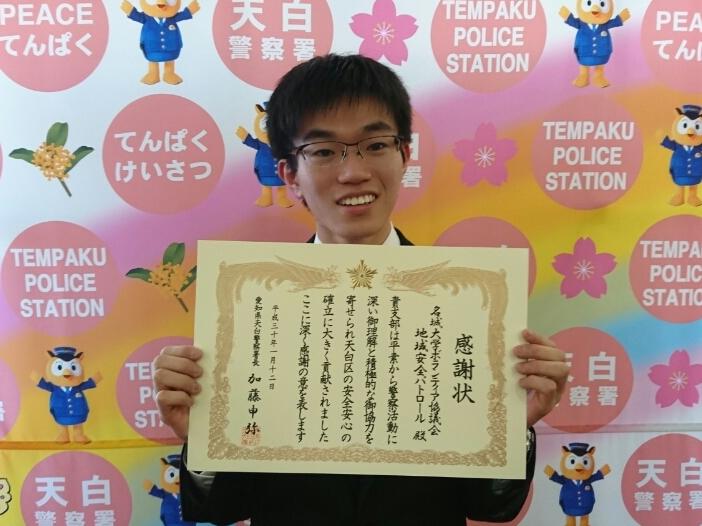 PEACE
てんぱく
天白
警察署
TEMPAKU
POLICE
STATION
PEACE
てんぱ
てんぱく
けいさつ
天白
警察署
TEMPAKU
POLICE
STATION
TEMPAKU
POLICE
STATION
TEMPAKU
POLICE
STATION
感謝状
名城大学ボランティア協議会
地域安全パトロール 殿
貴支部は平素から警察活動に
深い御理解と積極的な御協力を
寄せられ天白区の安全安心の
確立に大きく貢献されました
ここに深く感謝の意を表します
平成三十年一月十二日
愛知県天白警察署長 加藤申弥
天白
警察署
天白
警察署
天白
警察署
TEMPAKU
POLICE
STATION